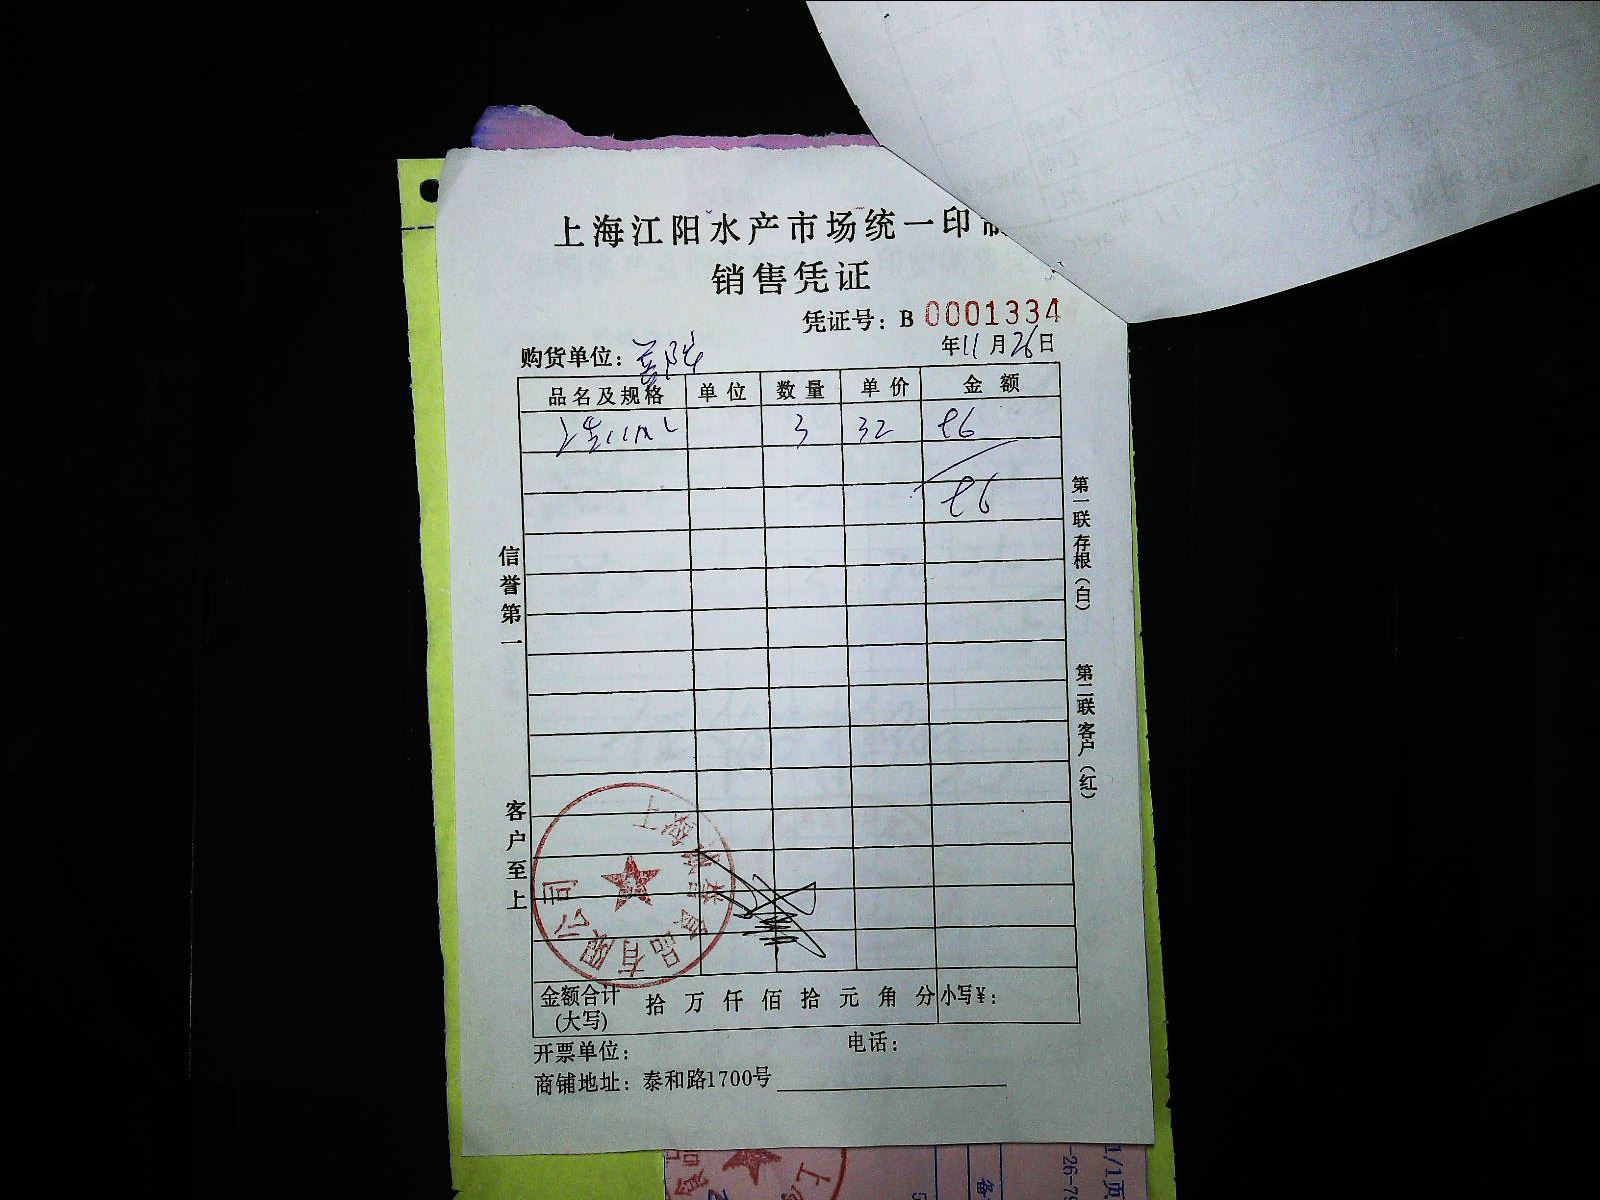 上海江阳水产市场统一印制
销售凭证
凭证号：B 0001334
购货单位：
年11月26日
品名及规格 单位 数量 单价 金额
3 32 96
96
信誉第一
客户至上
第一联存根（白）
第二联客户（红）
品有限公司
金额合计（大写） 拾 万 仟 佰 拾 元 角 分 小写¥：
开票单位： 电话：
商铺地址：泰和路1700号
1/1页
-26-79